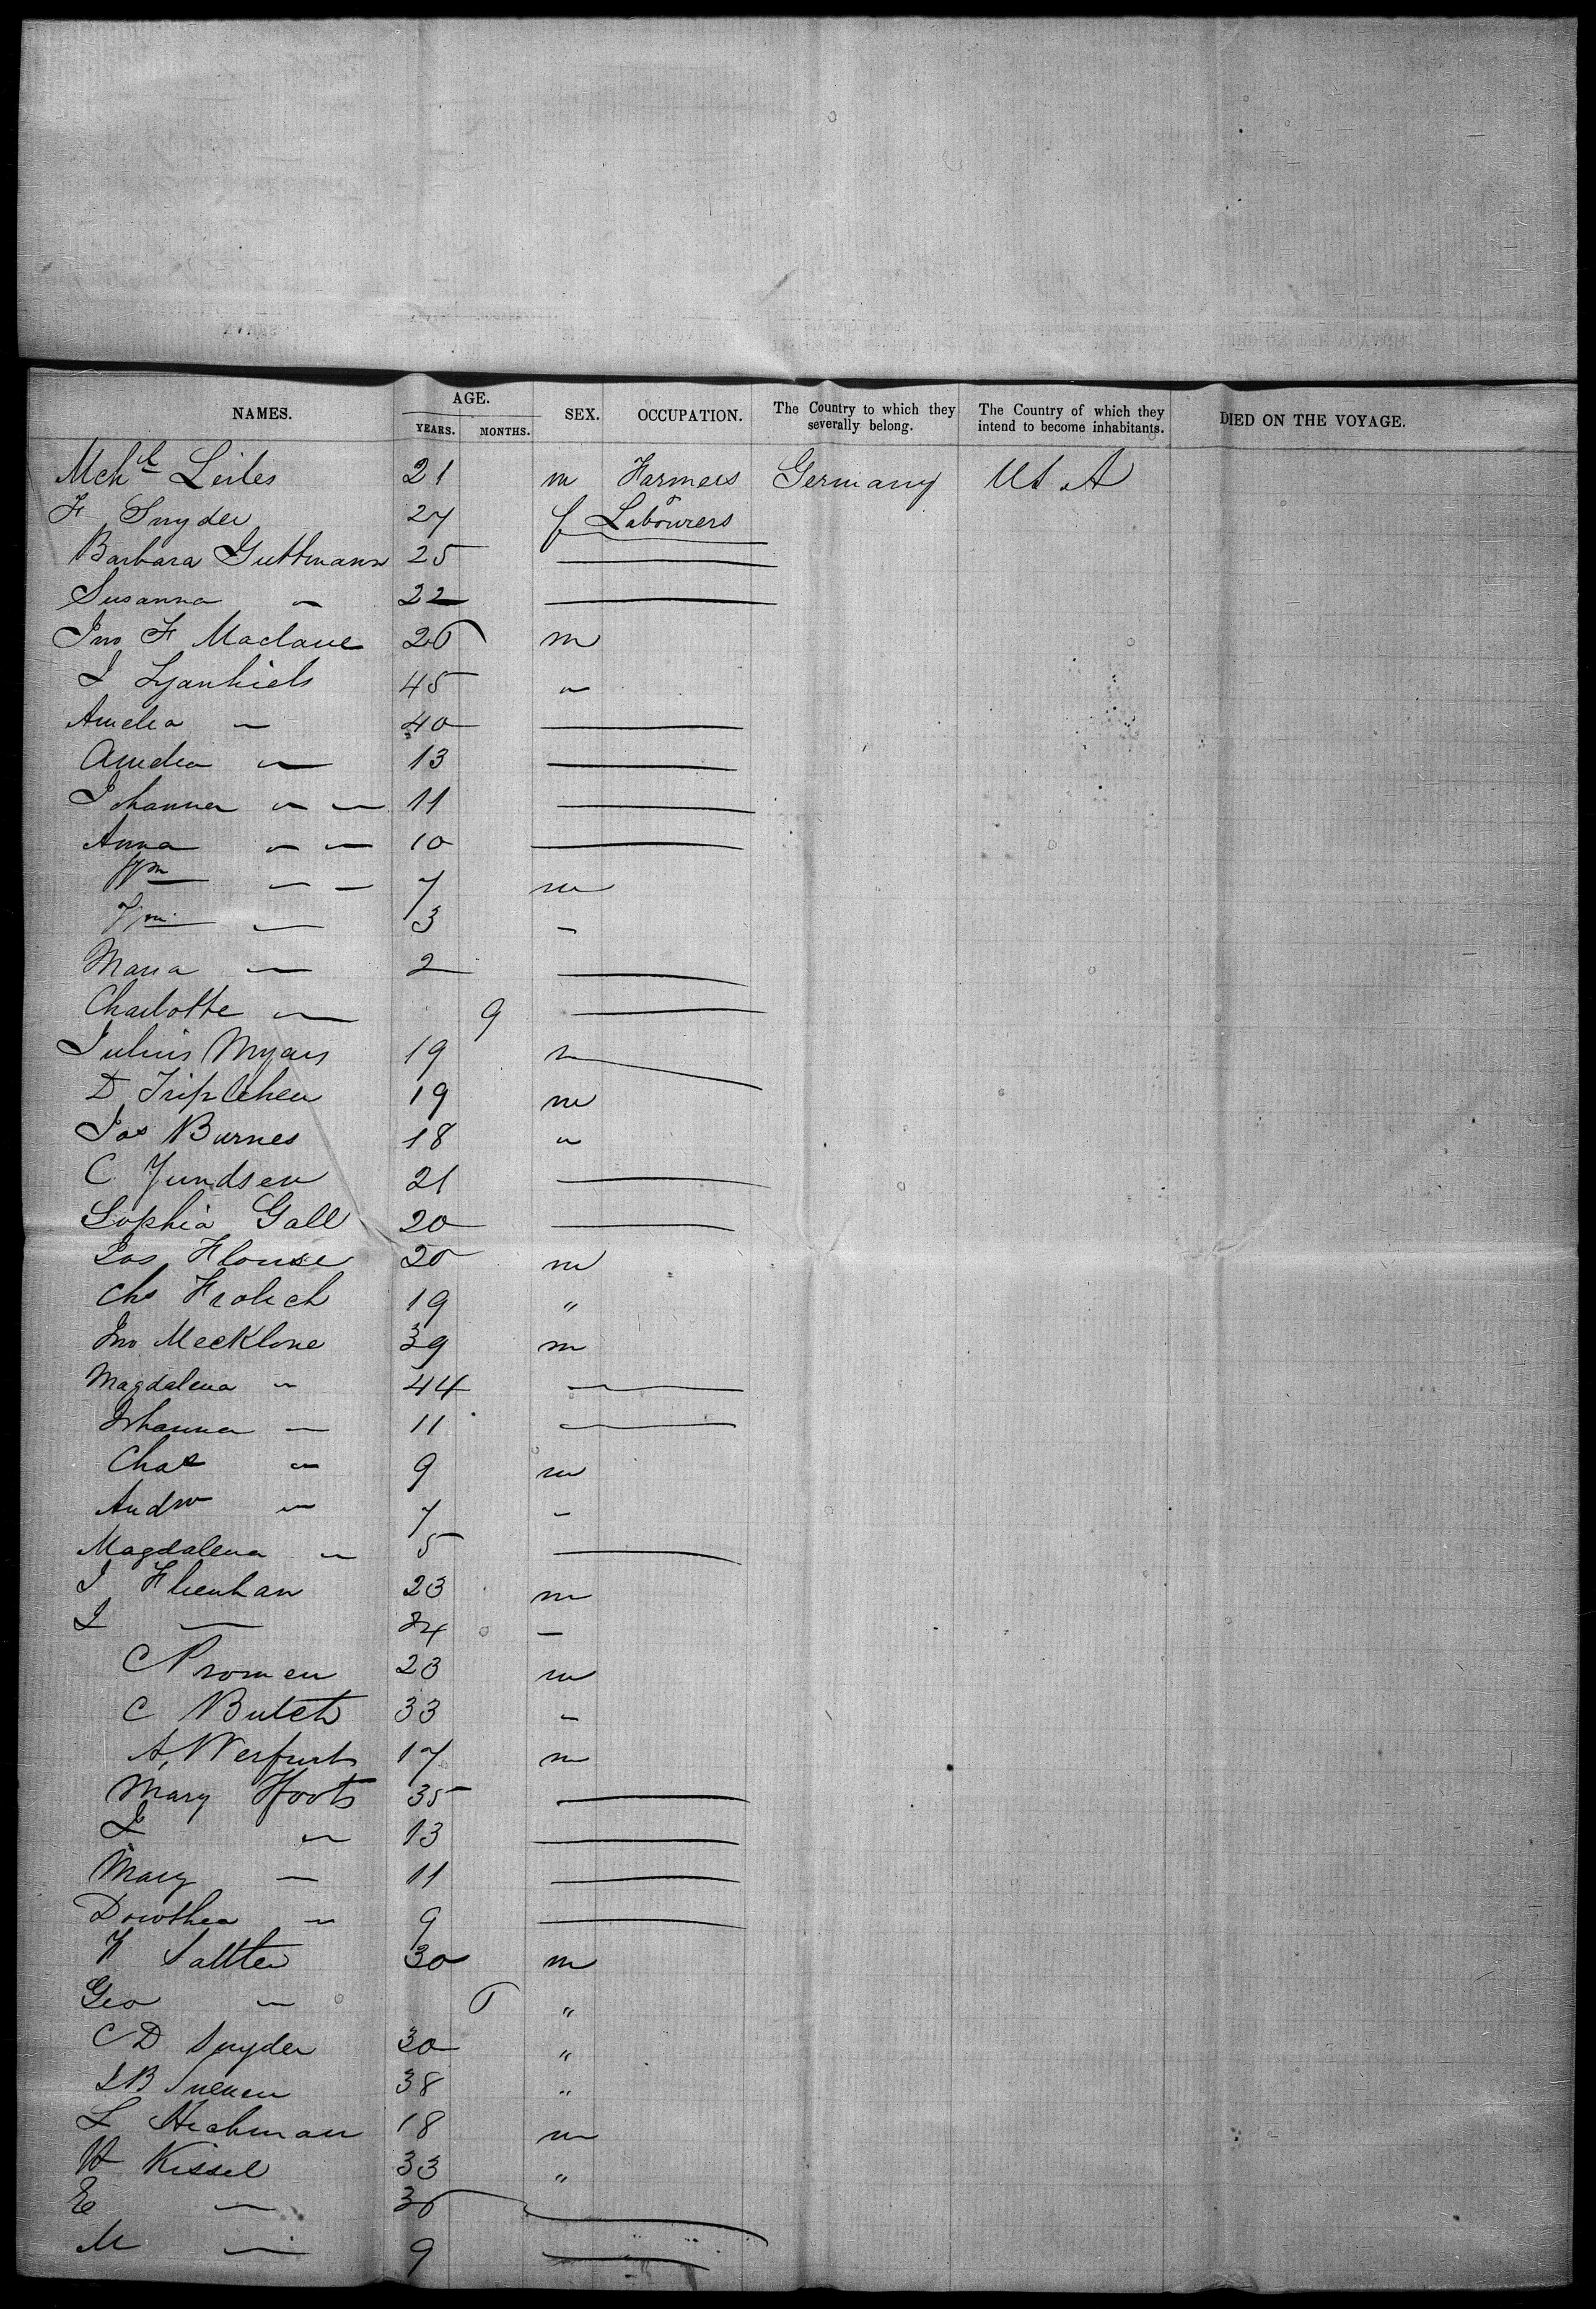 NAMES. AGE. YEARS. MONTHS. SEX. OCCUPATION. The Country to which they severally belong. The Country of which they intend to become inhabitants. DIED ON THE VOYAGE.
Mchl Leiles 21 m Farmers Germany U S A
F Snyder 27 f & Labourers
Barbara Guttmann 25
Susanna " 22
Jno F Maclaue 26 m
J 45 "
Amelia " 40
Amelia " 13
Johanna " " 11
Anna " " 10
Wm " " 7 m
3 "
Maria " 2
Charlotte " 9
Julius Myars 19
D Triplehen 19 m
Jos Burnes 18 "
C Jundsen 21
Sophia Gall 20
Jos Flouse 20 m
Chs Frolich 19 "
Jno Mecklone 39 m
Magdalena " 44
Johanna " 11
Chas " 9 m
Andw " 7 "
Magdalena " 5
J Flienhan 23 m
J " 24 "
C Promen 23 m
C Butch 33 "
A Werfurt 17 m
Mary Hoots 35
L " 13
Mary " 11
Dorothea " 9
F Saltter 30 m
Geo " 6 "
C D Snyder 30 "
J B 38 "
L Hickman 18 m
H Kissel 33 "
E " 36
M " 9